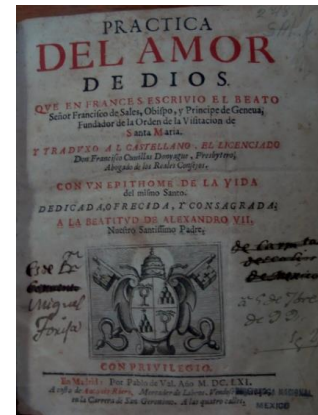 PRACTICA
DEL AMOR
DE DIOS.
QVE EN FRANCES ESCRIVIO EL BEATO
Señor Francisco de Sales, Obispo, y Principe de Geneua;
Fundador de la Orden de la Visitacion de
Santa Maria.
Y TRADVXO AL CASTELLANO, EL LICENCIADO
Don Francisco Cuvillas Donyague, Presbytero;
Abogado de los Reales Consejos.
CON VN EPITHOME DE LA VIDA
del mismo Santo.
DEDICADA, OFRECIDA, Y CONSAGRADA;
A LA BEATITVD DE ALEXANDRO VII,
Nuestro Santissimo Padre.
de
de Mexico
Miguel
CON PRIVILEGIO.
En Madrid: Por Pablo de Val. Año M. DC. LXI.
A costa de Mercader de Libros.
en la Carrera de San Geronimo. A las quatro calles.
MEXICO